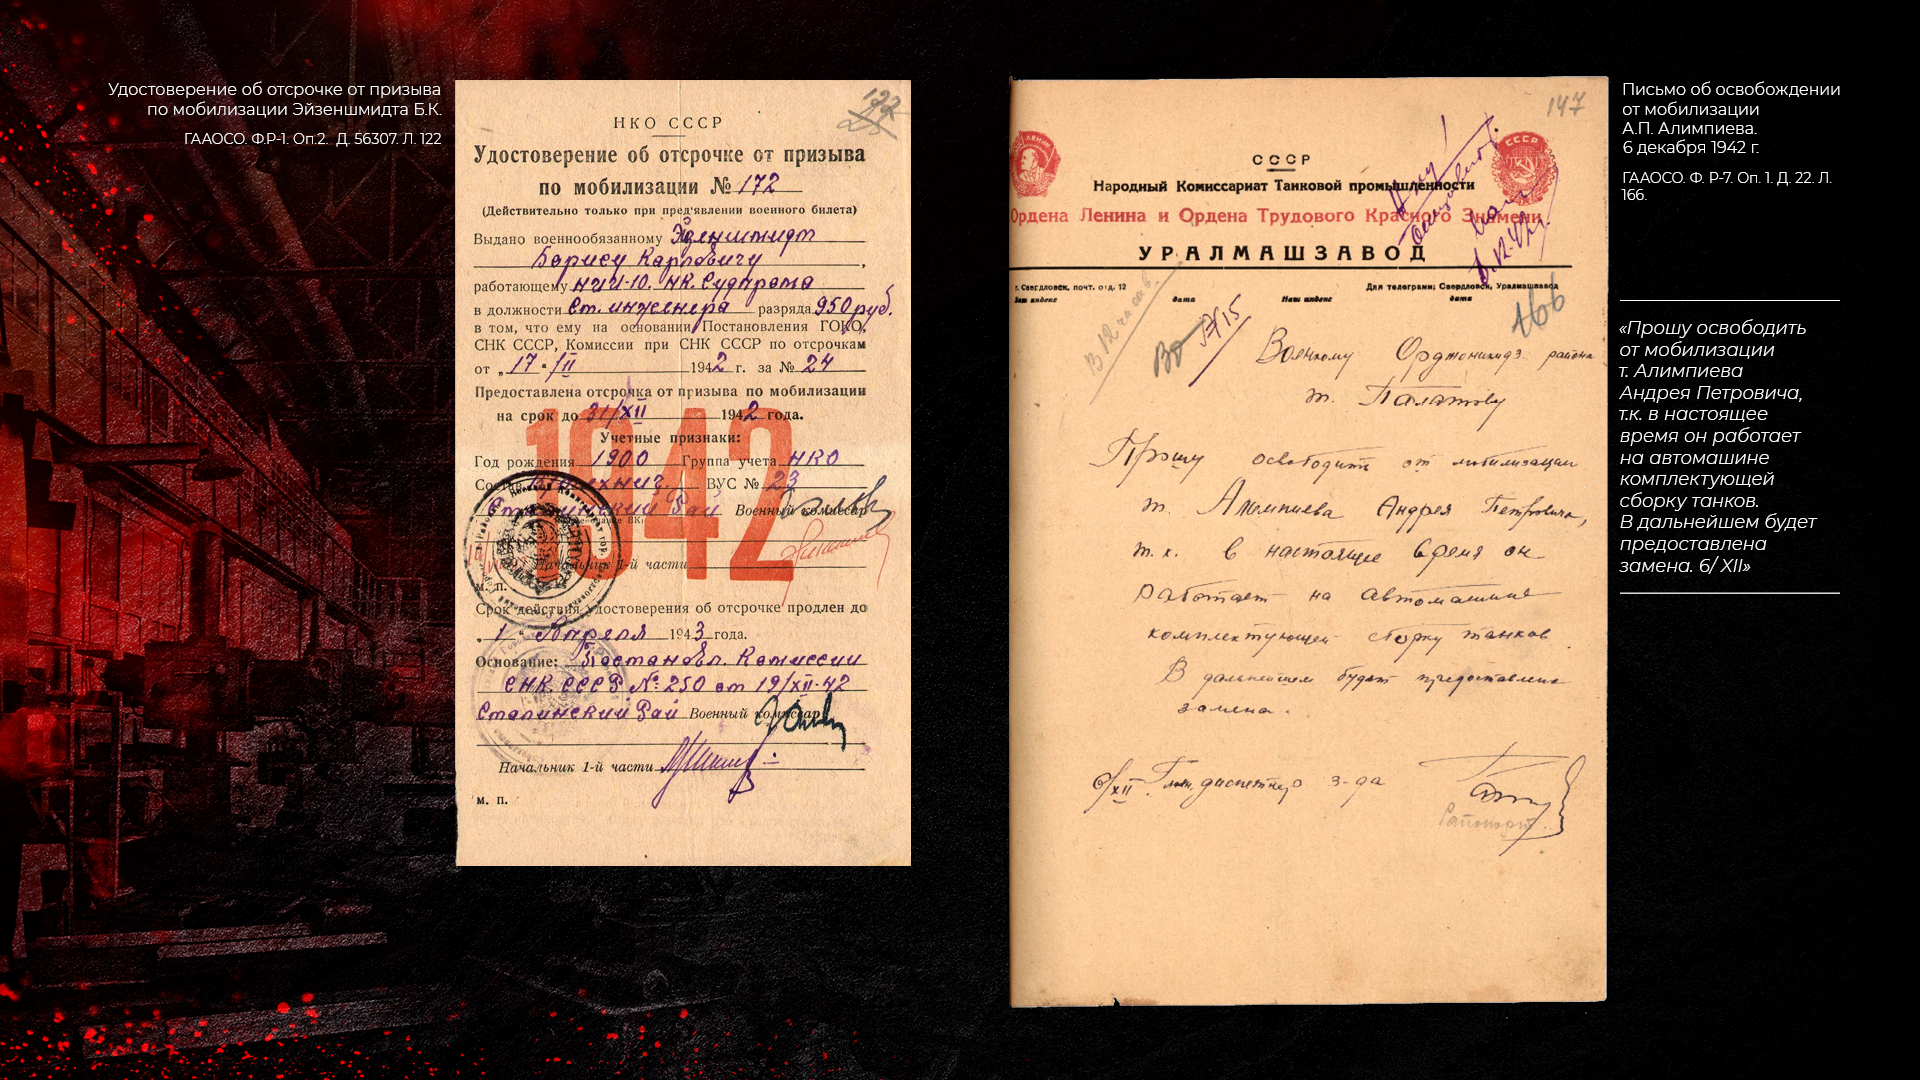 Удостоверение об отсрочке от призыва
по мобилизации Эйзеншмидта Б.К.
ГААОСО. Ф.Р-1. Оп.2. Д. 56307. Л. 122
122
НКО СССР
Удостоверение об отсрочке от призыва
по мобилизации № 172
(Действительно только при пред'явлении военного билета)
Выдано военнообязанному
Борису Карловичу
работающему НИИ-10. НК. Судпрома
в должности Ст. инженера разряда 950 руб.
в том, что ему на основании Постановления ГОКО,
СНК СССР, Комиссии при СНК СССР по отсрочкам
от „17"/II 1942 г. за № 24
Предоставлена отсрочка от призыва по мобилизации
на срок до 31/XII 1942 года.
1942
Учетные признаки:
Год рождения 1900 Группа учета НКО
Состав ВУС № 23
Сталинский Рай Военный комиссар
Начальник 1-й части
м. п.
Срок действия удостоверения об отсрочке продлен до
„1" Апреля 1943 года.
Основание: Постановл. Комиссии
СНК. СССР № 250 от 19/XII-42
Сталинский Рай Военный комиссар
Начальник 1-й части
м. п.
147
СССР
Народный Комиссариат Танковой промышленности
Ордена Ленина и Ордена Трудового Красного Знамени
УРАЛМАШЗАВОД
г. Свердловск, почт. отд. 12
Для телеграмм: Свердловск, Уралмашзавод
Ваш индекс дата Наш индекс дата
В 12 часов.
166
Военкому Орджоникидз района
т. Палатову
Прошу освободить от мобилизации
т. Алимпиева Андрея Петровича,
т. к. в настоящее время он
работает на автомашине
комплектующей сборку танков.
В дальнейшем будет предоставлена
замена.
6/XII Глав. диспетчер з-да
Письмо об освобождении
от мобилизации
А.П. Алимпиева.
6 декабря 1942 г.
ГААОСО. Ф. Р-7. Оп. 1. Д. 22. Л.
166.
«Прошу освободить
от мобилизации
т. Алимпиева
Андрея Петровича,
т.к. в настоящее
время он работает
на автомашине
комплектующей
сборку танков.
В дальнейшем будет
предоставлена
замена. 6/ XII»